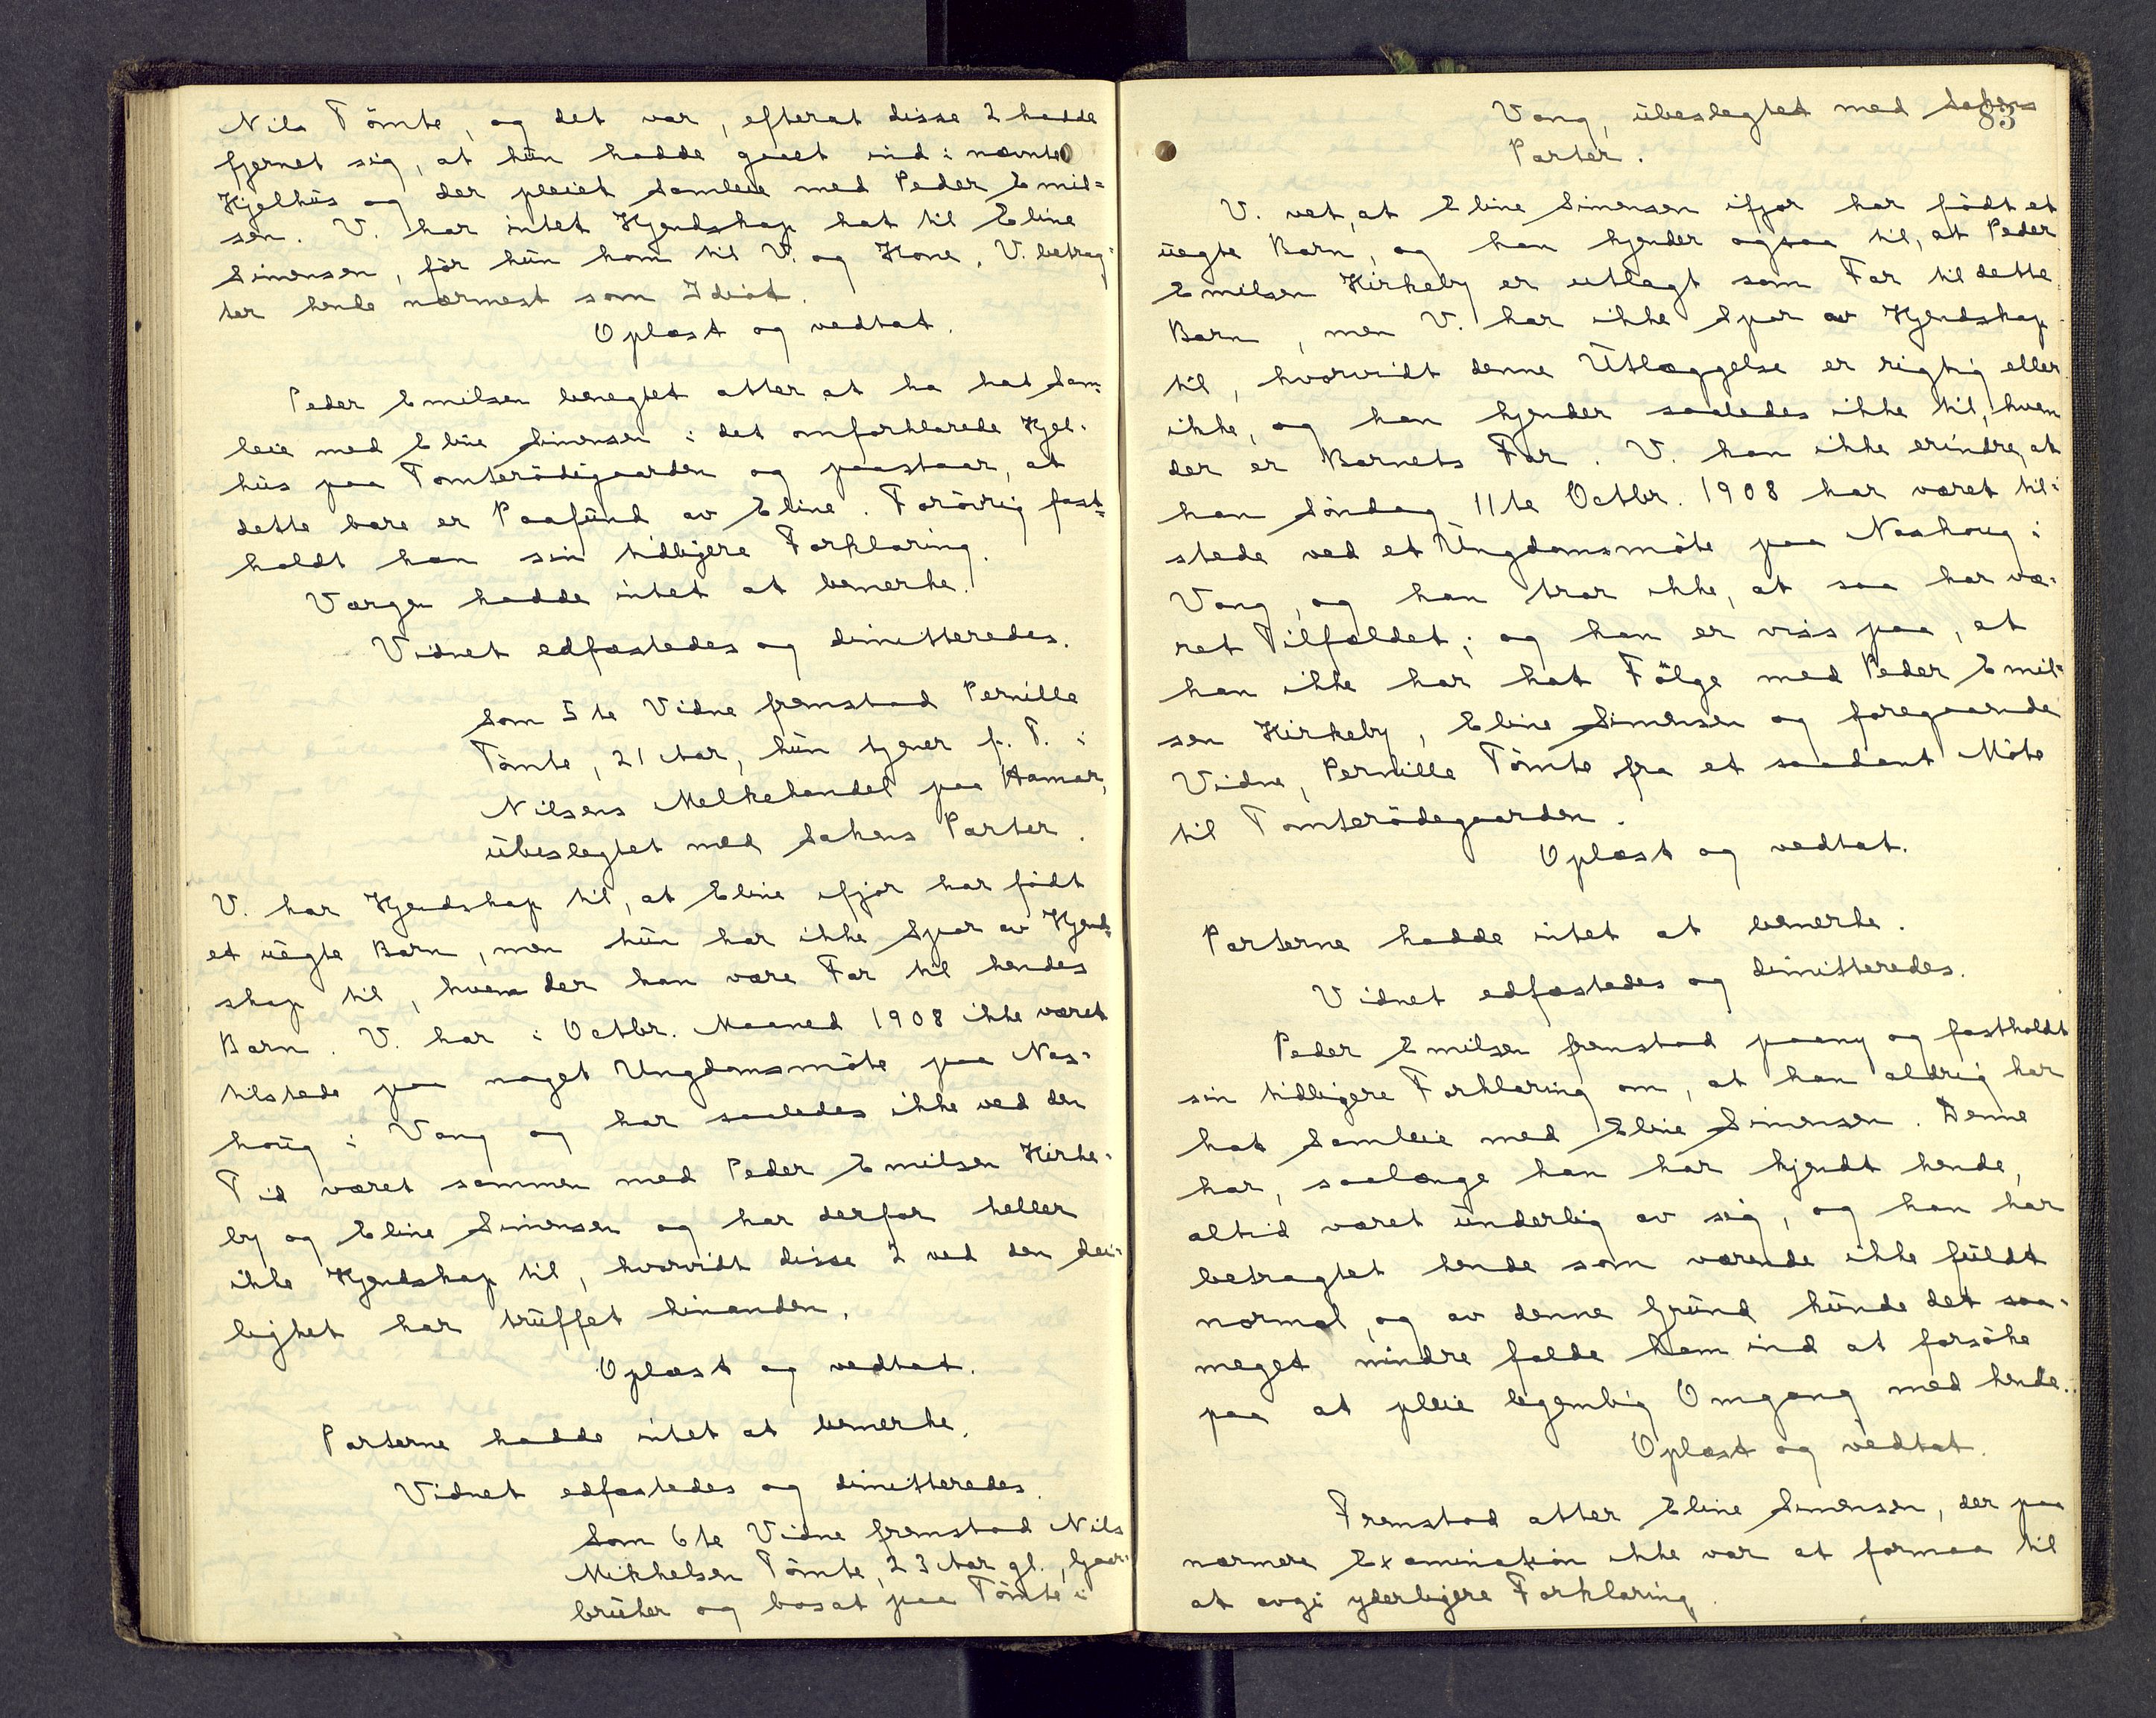 Nils Tömte, og det var, efterat disse 2 hadde
fjernet sig, at hun hadde gaaet ind i nævnte
Kjelhus og der pleiet Samleie med Peder Emil=
sen. V. har intet Kjendskap hat til Eline
Simensen, før hun kom til V. og Kone. V. betrag=
ter hende nærmest som Idiot.
Oplæst og vedtat.
Peder Emilsen benegtet atter at ha hat Sam=
leie med Eline Simensen i det omforklarede Kjel-
hus paa Tomterödegaarden og paastaar, at
dette bare er Paafund av Eline. Forövrig fast=
holdt han sin tidligere Forklaring.
Værgen hadde intet at bemerke.
Vidnet edfæstedes og dimitteredes.
Som 5te Vidne fremstod Pernille
Tömte, 21 Aar, hun tjener p. T. i
Nilsens Melkehandel paa Hamar,
ubeslegtet med Sakens Parter.
V. har Kjendskap til, at Eline ifjor har födt
et uegte Barn, men hun har ikke Spor av Kjend=
skap til, hvem der kan være Far til hendes
Barn. V. har i Octbr. Maaned 1908 ikke været
tilstede paa noget Ungdomsmöte paa Nas=
houg i Vang og har saaledes ikke ved den
Tid været sammen med Peder Emilsen Kirke=
by og Eline Simensen og har derfor heller
ikke Kjendskap til, hvorvidt disse 2 ved den Lei=
lighet har truffet hinanden.
Oplæst og vedtat.
Parterne hadde intet at bemerke.
Vidnet edfæstedes og dimitteredes.
Som 6te Vidne fremstod Nils
Mikkelsen Tömte, 23 Aar gl., Gaar=
bruker og bosat paa Tömte i
83
Vang, ubeslegtet med Sakens
Parter.
V. vet, at Eline Simensen ifjor har födt et
uegte Barn, og han kjender ogsaa til, at Peder
Emilsen Kirkeby er utlagt som Far til dette
Barn, men V. har ikke Spor av Kjendskap
til, hvorvidt denne Utlæggelse er rigtig eller
ikke, og han kjender saaledes ikke til, hvem
der er Barnets Far. V. kan ikke erindre, at
han Söndag 11te Octbr. 1908 har været til=
stede ved et Ungdomsmöte paa Nashoug i
Vang, og han tror ikke, at saa har væ=
ret Tilfældet; og han er viss paa, at
han ikke har hat Fölge med Peder Emil=
sen Kirkeby, Eline Simensen og foregaaende
Vidne, Pernille Tömte fra et saadant Möte
til Tomterödegaarden.
Oplæst og vedtat.
Parterne hadde intet at bemerke.
Vidnet edfæstedes og dimitteredes.
Peder Emilsen fremstod paany og fastholdt
sin tidligere Forklaring om, at han aldrig har
hat Samleie med Eline Simensen. Denne
har, saalænge han har kjendt hende,
altid været underlig av sig, og han har
betragtet hende som værende ikke fuldt
normal, og av denne Grund kunde det saa=
meget mindre falde ham ind at forsöke
paa at pleie legemlig Omgang med hende.
Oplæst og vedtat.
Fremstod atter Eline Simensen, der paa
nærmere Examination ikke var at formaa til
at avgi yderligere Forklaring.